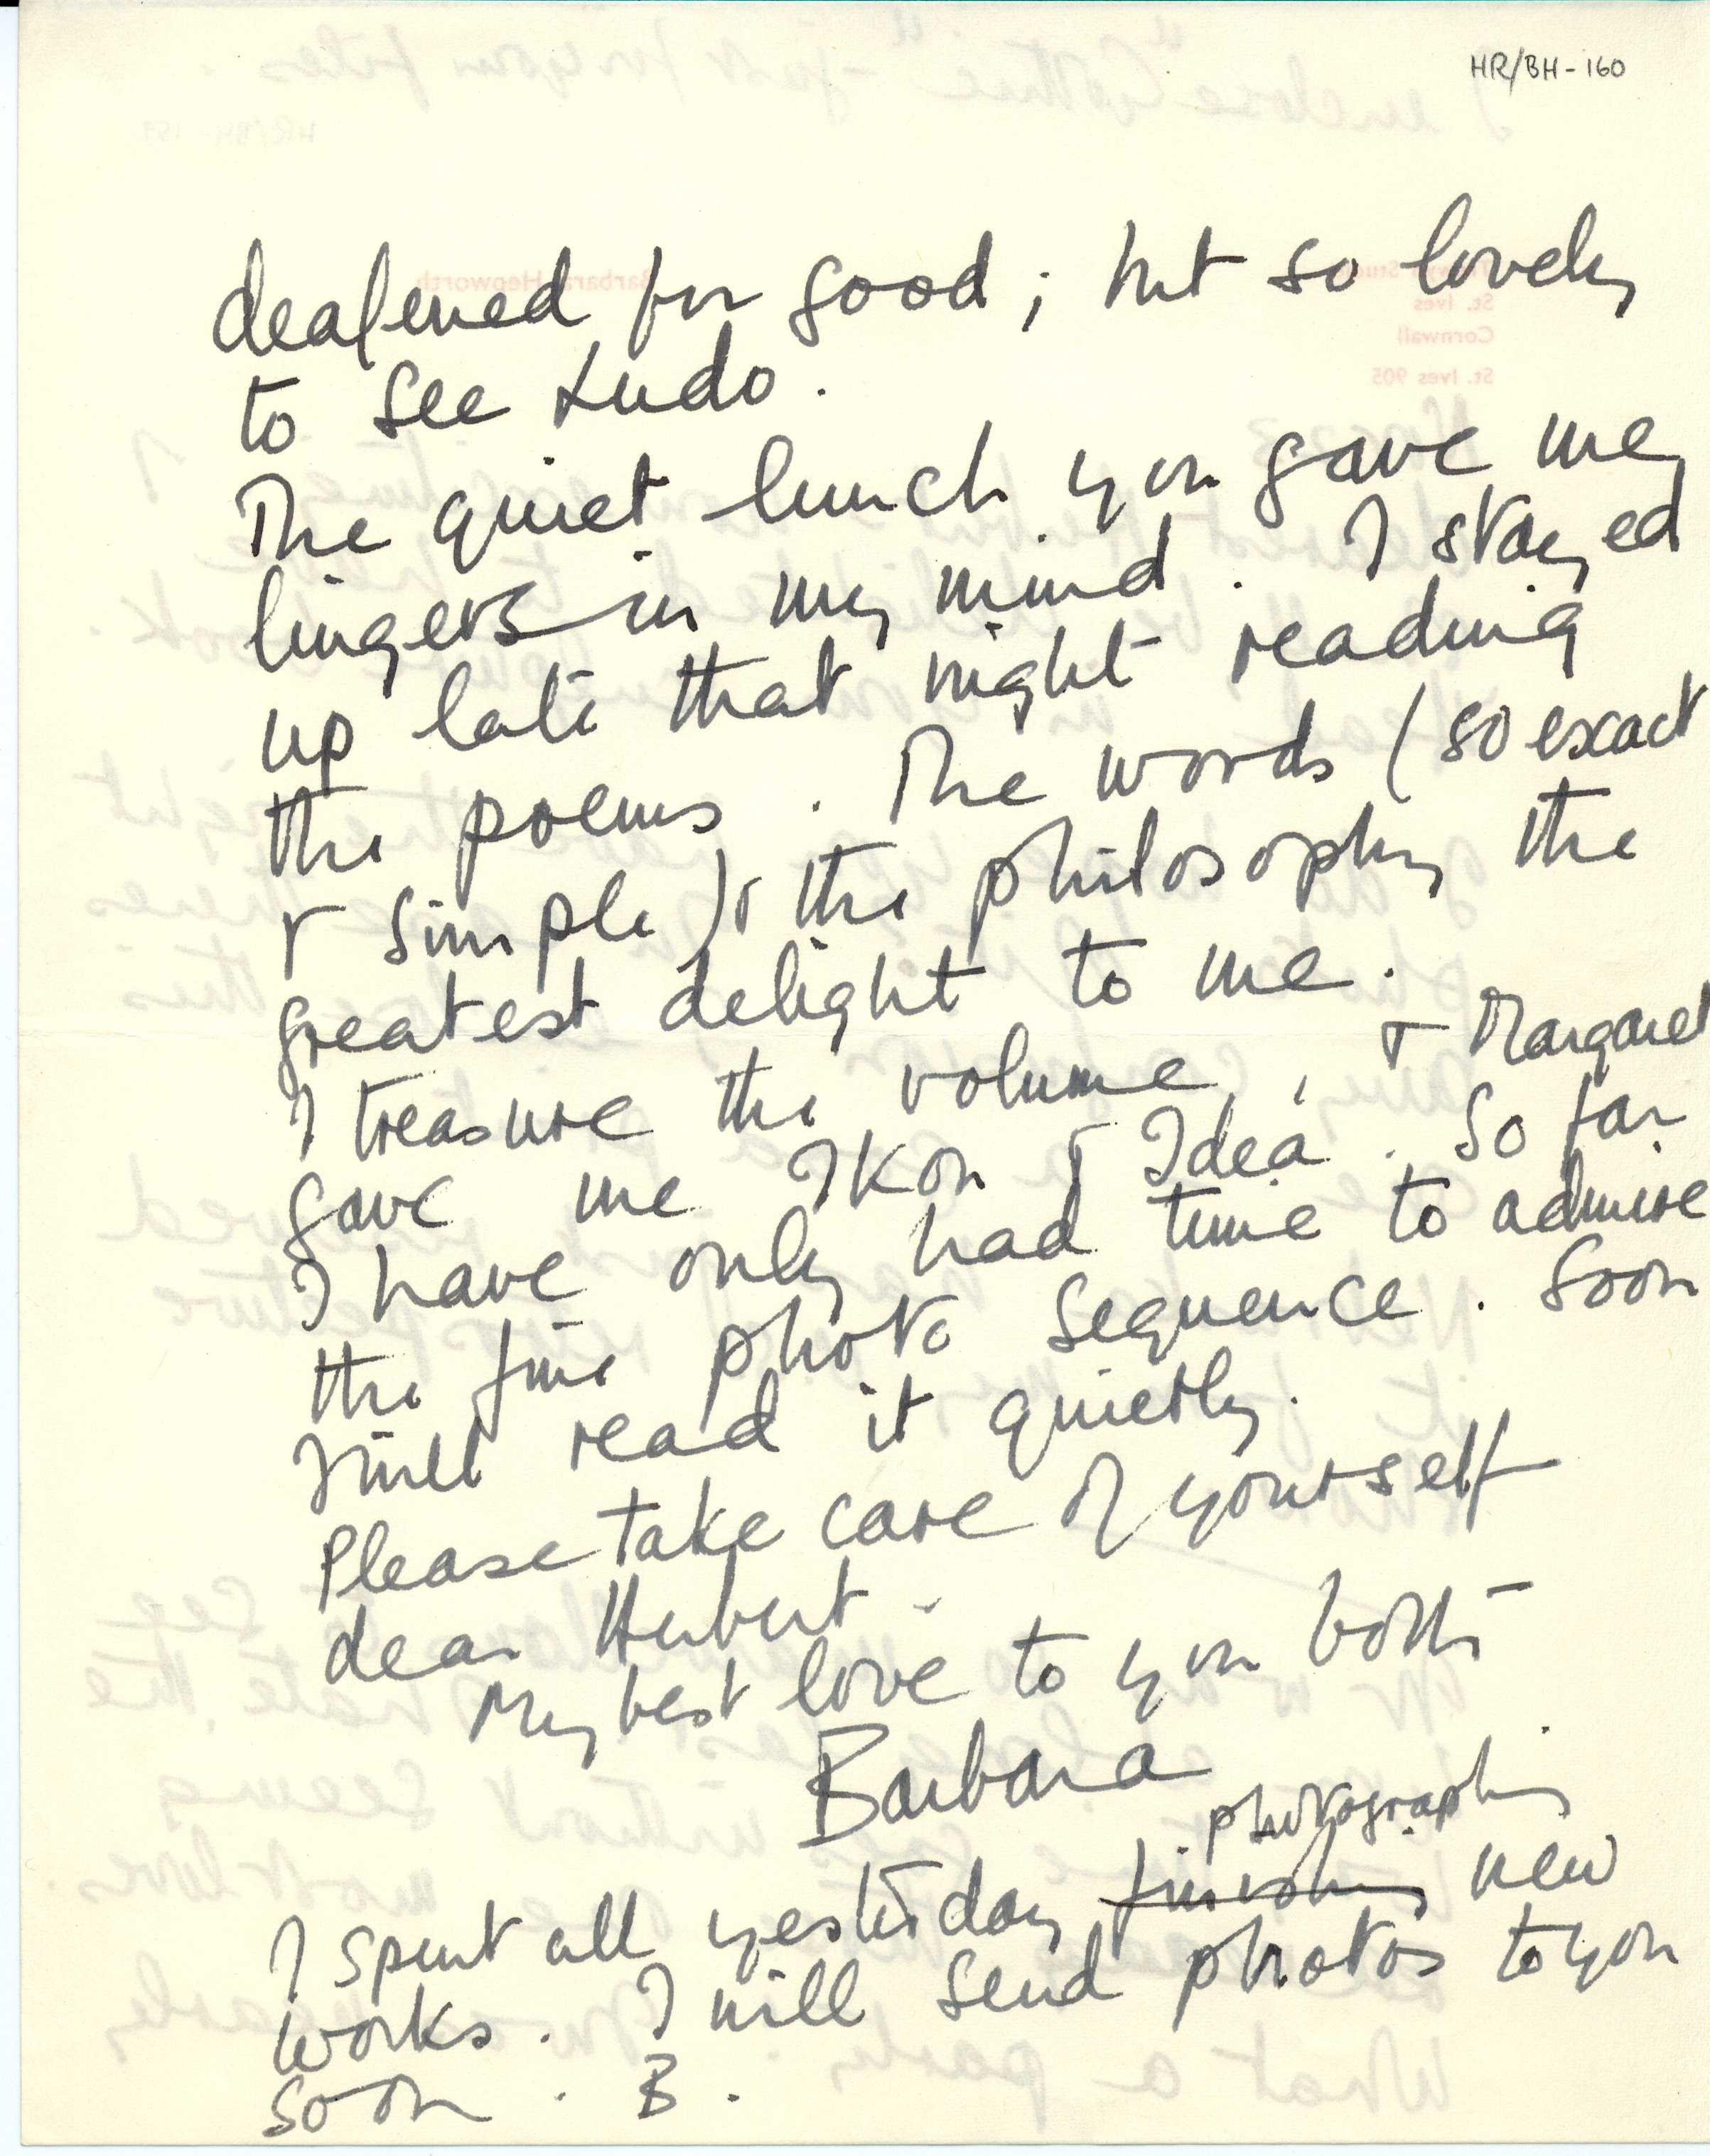 HR/BH-160
deafened for good; but so lovely
to see Ludo.
The quiet lunch you gave me
lingers in my mind. I stayed
up late that night reading
the poems. The words (so exact
& simple) & the philosophy the
greatest delight to me.
I treasure the volume, & Margaret
gave me Ikon & Idea. So far
I have only had time to admire
the fine photo sequence. Soon
I will read it quietly.
Please take care of yourself
dear Herbert.
My best love to you both
Barbara
photographing
I spent all yesterday finishing new
works. I will send photos to you
soon. B.